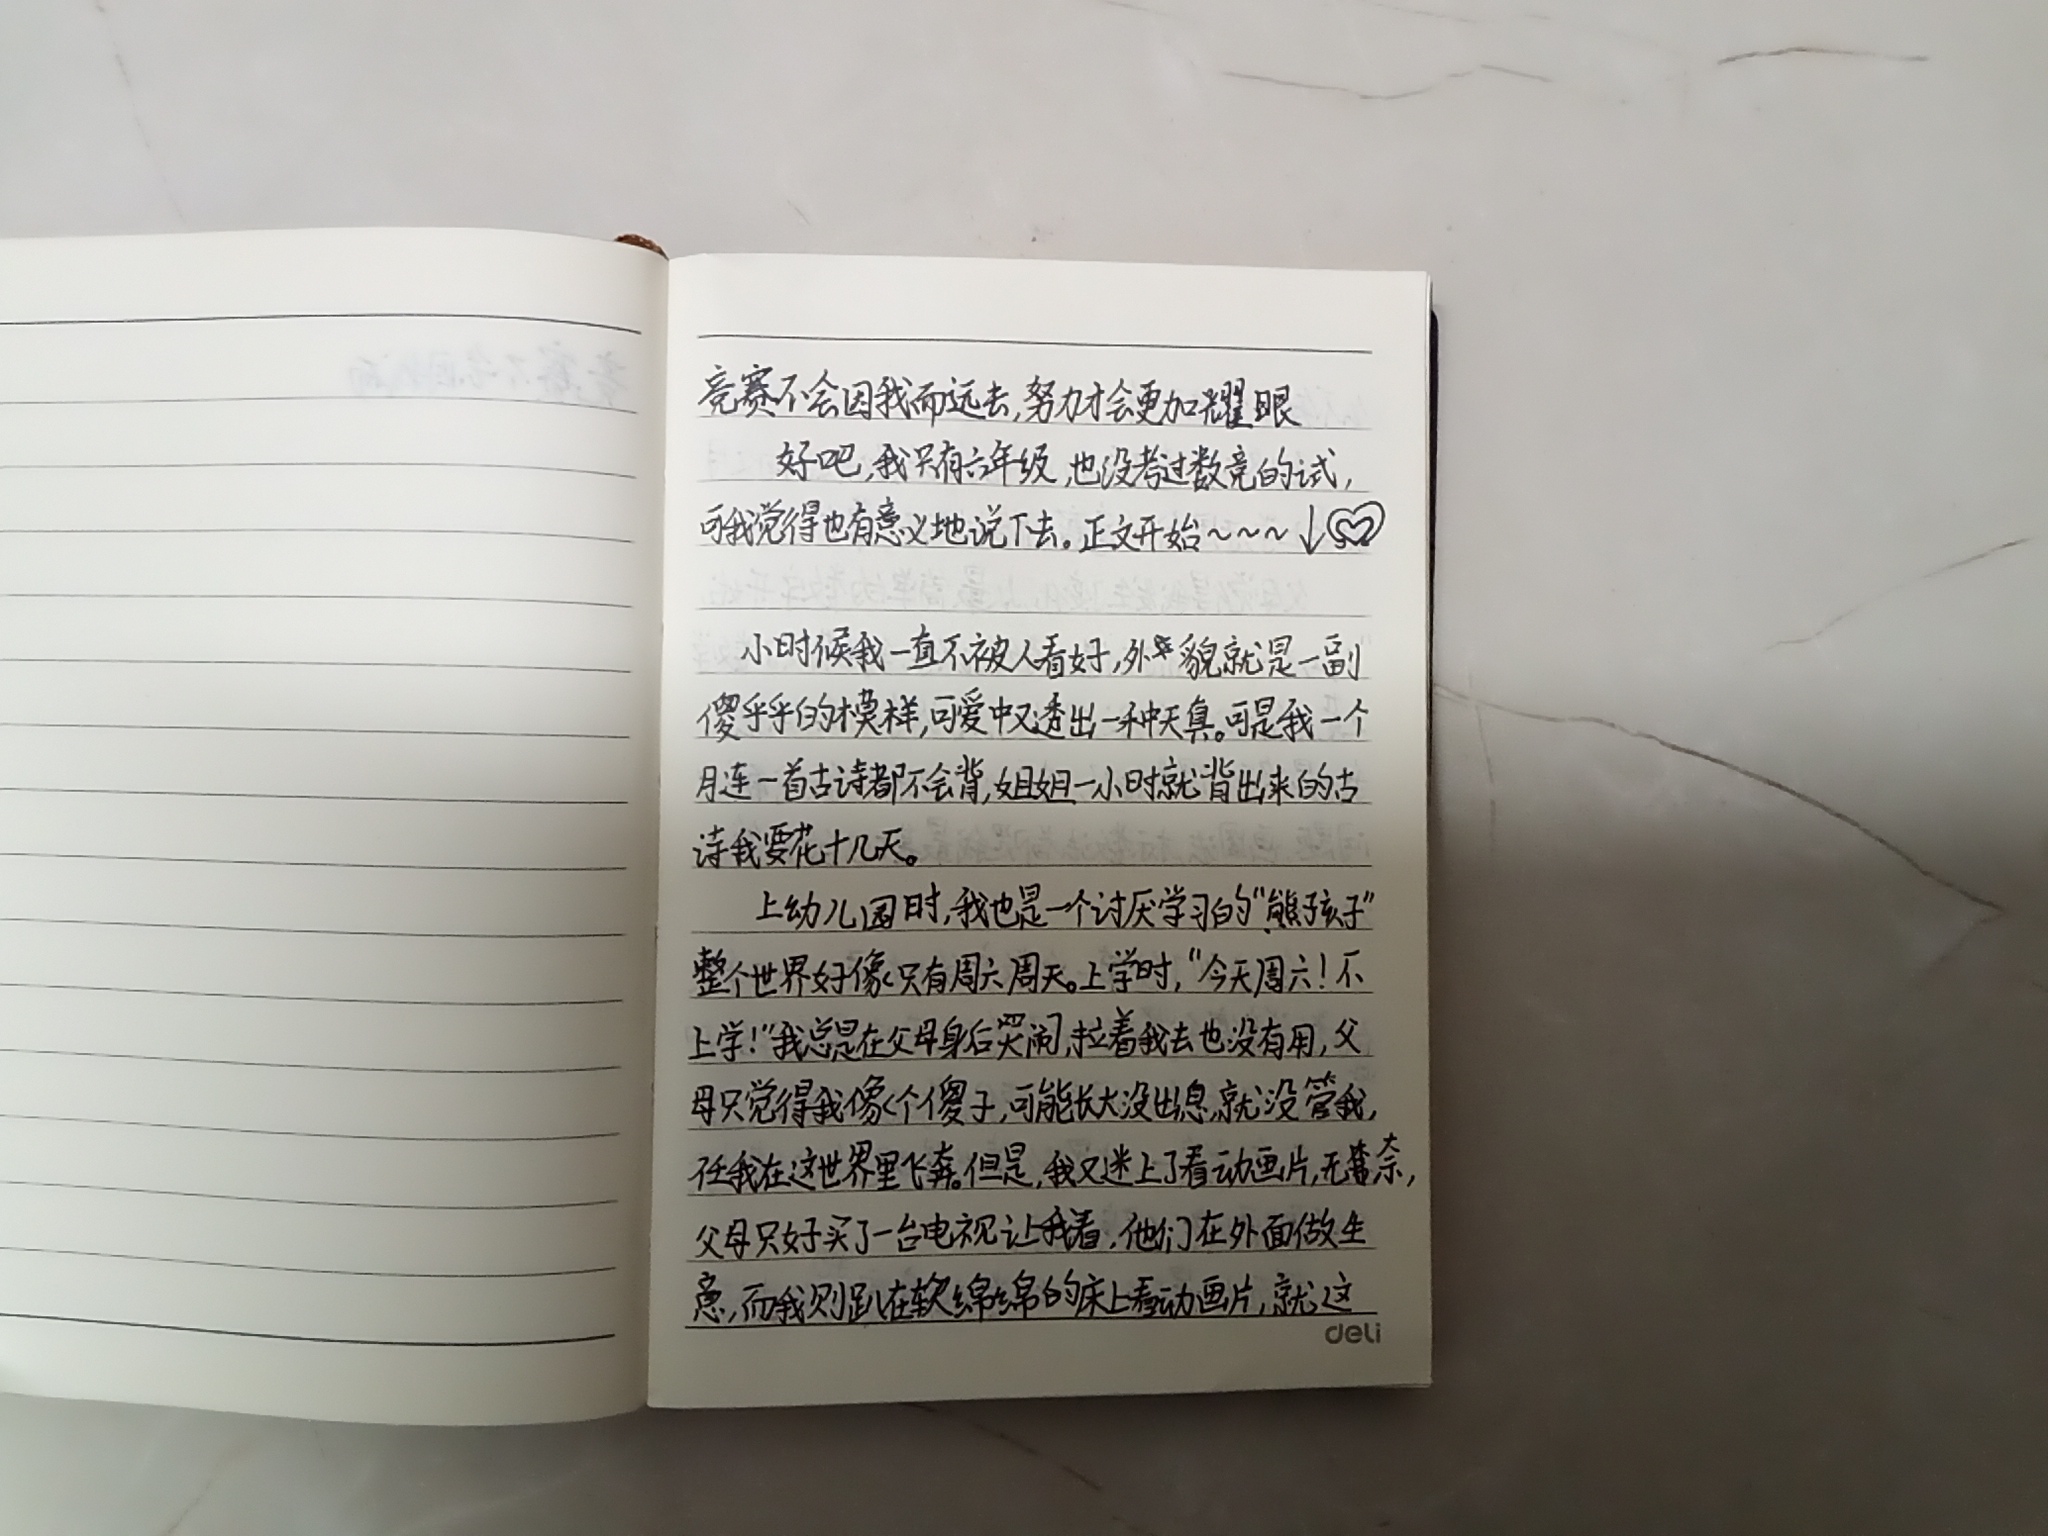 竞赛不会因我而远去,努力才会更加耀眼
好吧,我只有六年级,也没考过数竞的试,
可我觉得也有意义地说下去。正文开始~~~↓
小时候我一直不被人看好,外貌就是一副
傻乎乎的模样,可爱中又透出一种天真。可是我一个
月连一首古诗都不会背,姐姐一小时就背出来的古
诗我要花十几天。
上幼儿园时,我也是一个讨厌学习的"熊孩子"
整个世界好像只有周六周天。上学时,"今天周六!不
上学!"我总是在父母身后哭闹,拉着我去也没有用,父
母只觉得我像个傻子,可能长大没出息,就没管我,
任我在这世界里飞奔。但是,我又迷上了看动画片,无奈,
父母只好买了一台电视让我看,他们在外面做生
意,而我则趴在软绵绵的床上看动画片,就这
deli